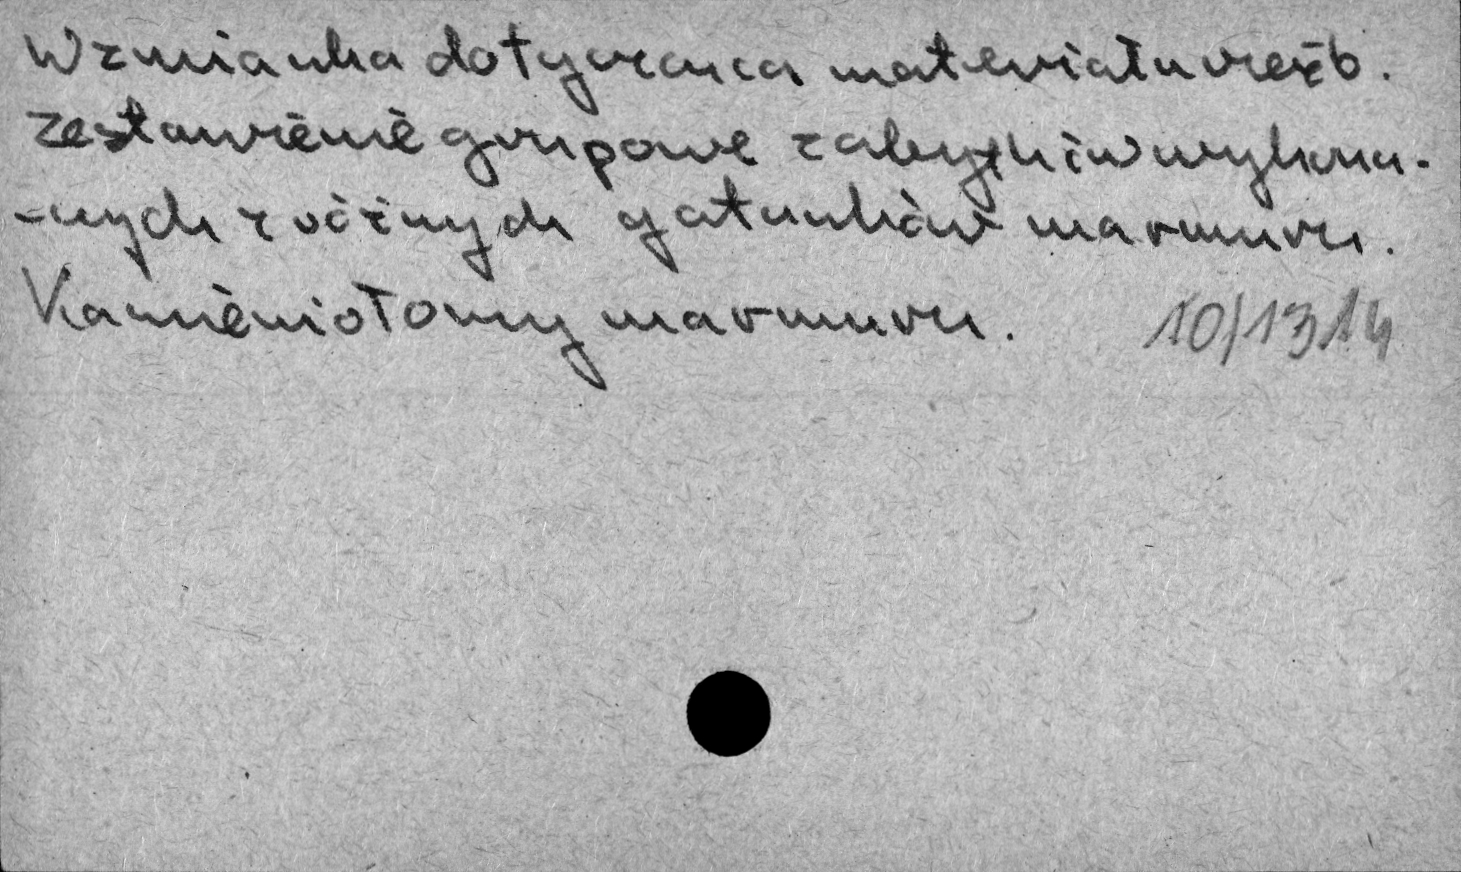 Wzmianka dotycząca materiału rzeźb.
Zestawienie grupowe zabytków wykona-
-nych z różnych gatunków marmuru.
Kamieniołomy marmuru. 10/1314